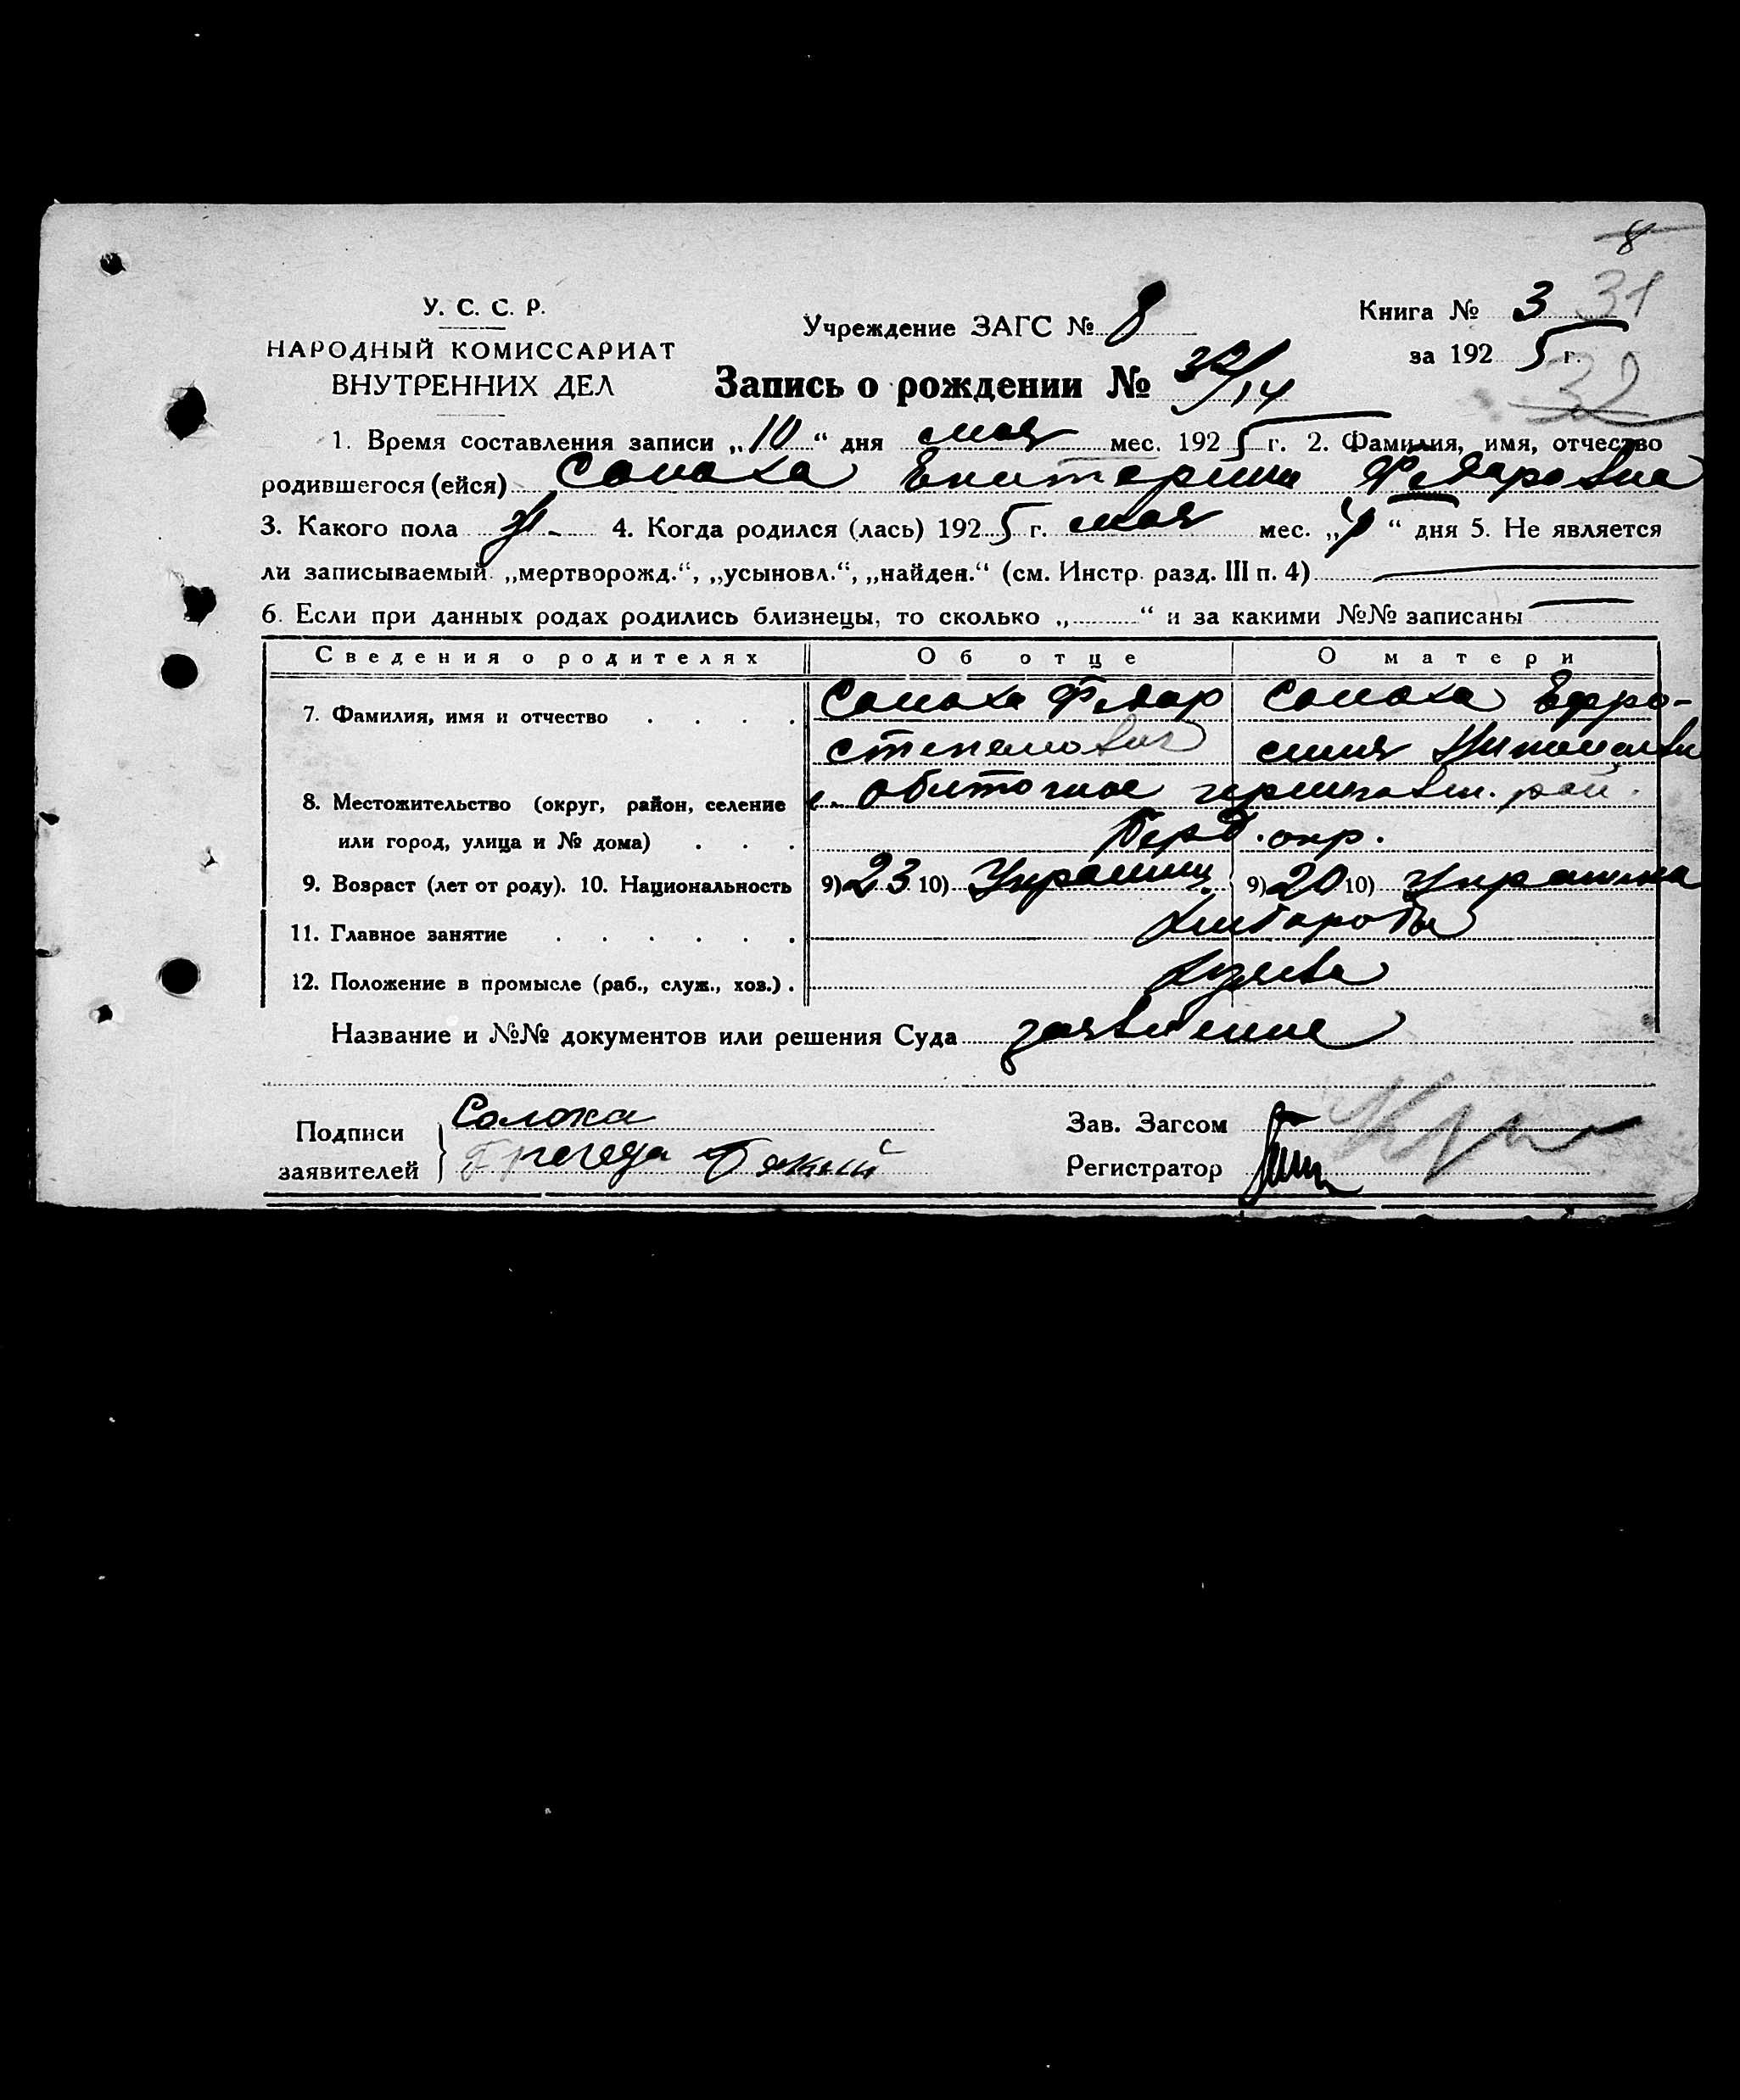 8
У. С. С. Р.
НАРОДНЫЙ КОМИССАРИАТ
ВНУТРЕННИХ ДЕЛ
Учреждение ЗАГС № 8
Книга № 3 31
за 1925 г.
32
Запись о рождении № 32/14
1. Время составления записи „10“ дня мая мес. 1925 г. 2. Фамилия, имя, отчество
родившегося (ейся) Солоха Екатерина Федоровна
3. Какого пола ж- 4. Когда родился (лась) 1925 г. мая мес. „ “ дня 5. Не является
ли записываемый „мертворожд.“, „усыновл.“, „найден.“ (см. Инстр. разд. III п. 4)
6. Если при данных родах родились близнецы, то сколько „ “ и за какими №№ записаны
Сведения о родителях Об отце О матери
7. Фамилия, имя и отчество Солоха Федор Солоха Ефро-
Степанович синия
8. Местожительство (округ, район, селение с. Обиточное рай.
или город, улица и № дома) Берд. окр.
9. Возраст (лет от роду). 10. Национальность 9) 23 10) Украинец 9) 20 10) Украинка
11. Главное занятие Хлебороб
12. Положение в промысле (раб., служ., хоз.) хозяева
Название и №№ документов или решения Суда заявление
Подписи заявителей Солоха
Зав. Загсом
Регистратор